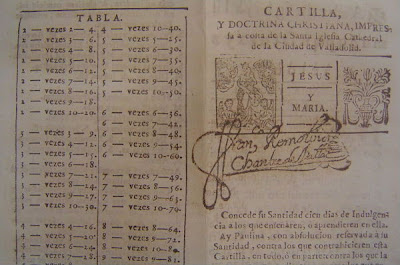 TABLA.
2 — vezes 2— 4. 4 — vezes 10—40.
2 — vezes 3— 6. 5 — vezes 5—25.
2 — vezes 4— 8. 5 — vezes 6—30.
2 — vezes 5—10. 5 — vezes 7—35.
2 — vezes 6—12. 5 — vezes 8—40.
2 — vezes 7—14. 5 — vezes 9—45.
2 — vezes 8—16. 5 — vezes 10—50.
2 — vezes 9—18.
2 — vezes 10—20. 6 — vezes 6—36.
6 — vezes 7—42.
3 — vezes 3— 9. 6 — vezes 8—48.
3 — vezes 4—12. 6 — vezes 9—54.
3 — vezes 5—15. 6 — vezes 10—60.
3 — vezes 6—18.
3 — vezes 7—21. 7 — vezes 7—49.
3 — vezes 8—24. 7 — vezes 8—56.
3 — vezes 9—27. 7 — vezes 9—63.
3 — vezes 10—30. 7 — vezes 10—70.
4 — vezes 4—16. 8 — vezes 8—64.
4 — vezes 5—20. 8 — vezes 9—72.
4 — vezes 6—24. 8 — vezes
CARTILLA,
Y DOCTRINA CHRISTIANA, IMPRES-
sa à costa de la Santa Iglesia Cathedral
de la Ciudad de Valladolid.
JESUS
Y
MARIA.
Chantre de
Concede su Santidad cien dias de Indulgen
cia à los que enseñaren, ò aprendieren en ella.
Ay Paulina, con absolucion reservada à su
Santidad, contra los que contrahicieren esta
Cartilla, en todo, ò en parte: contra los que la